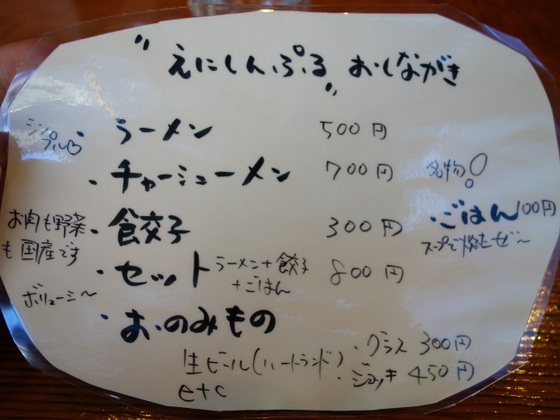 "えにしんぷる" おしながき
シンプル♡
・ラーメン 500円
・チャーシューメン 700円 名物!
お肉も野菜も国産です
・餃子 300円
・ごはん 100円
スープで炊もぜ〜
・セット ラーメン+餃子+ごはん 800円
ボリューミ〜
・おのみもの
生ビール(ハートランド)
・グラス 300円
・ジョッキ 450円
etc